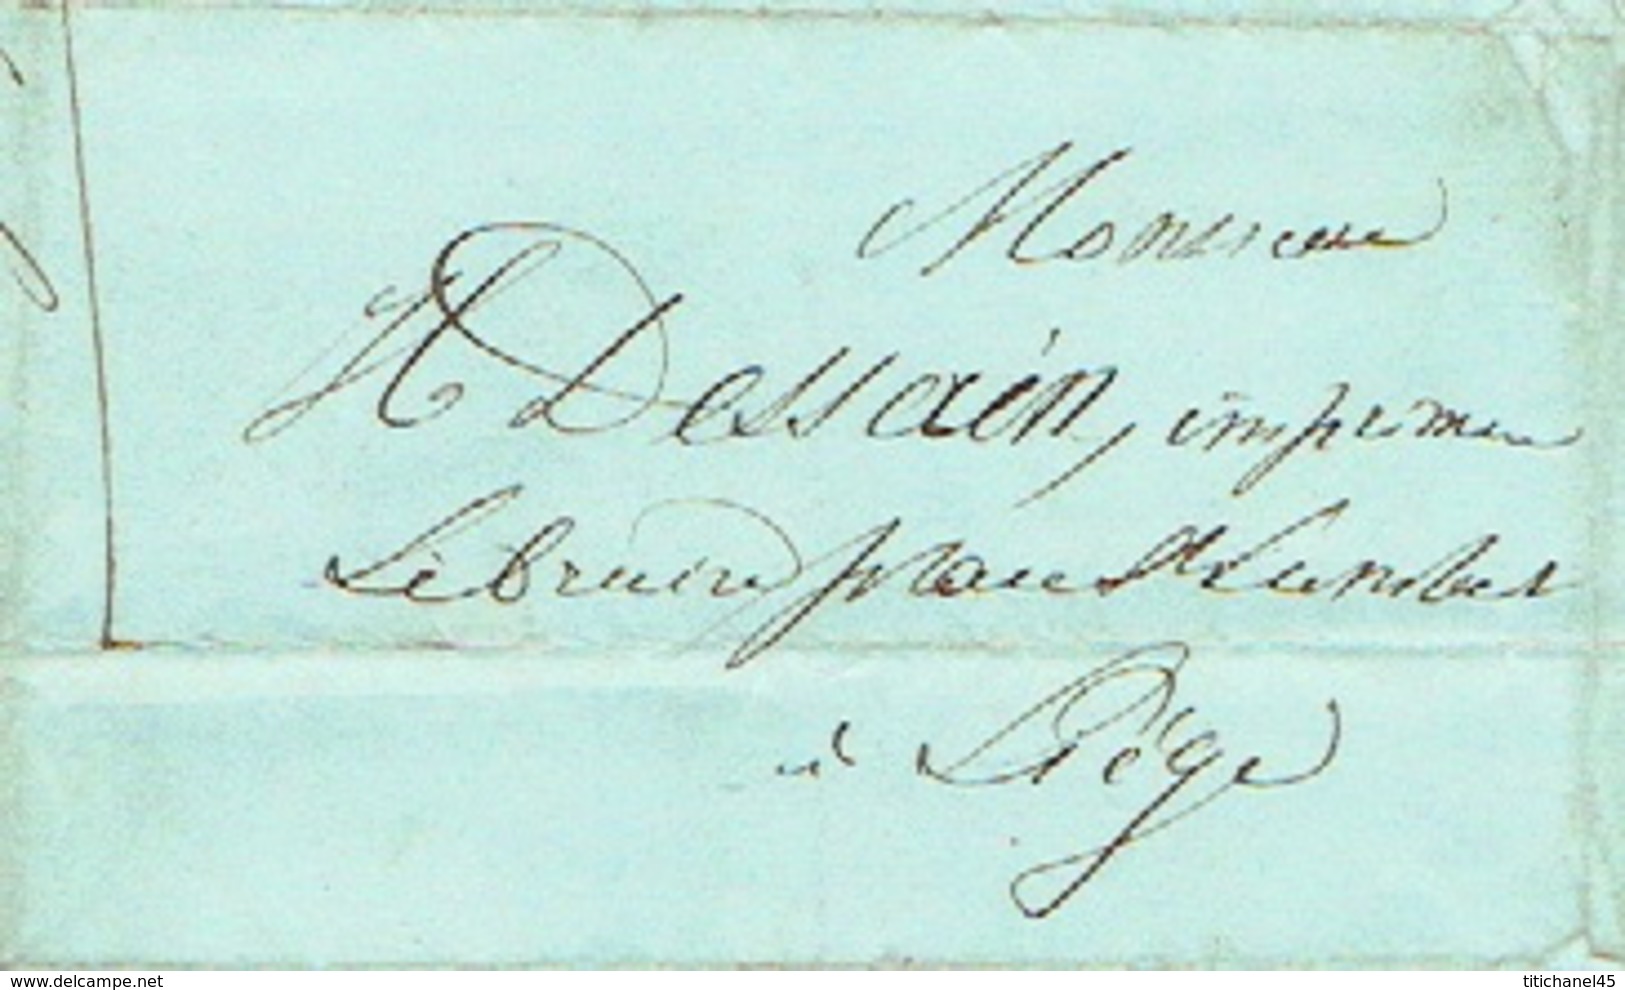 Monsieur
H Dessain, imprimeur
Libraire, place St Lambert
à Liège
delcampe.net
titichanel45